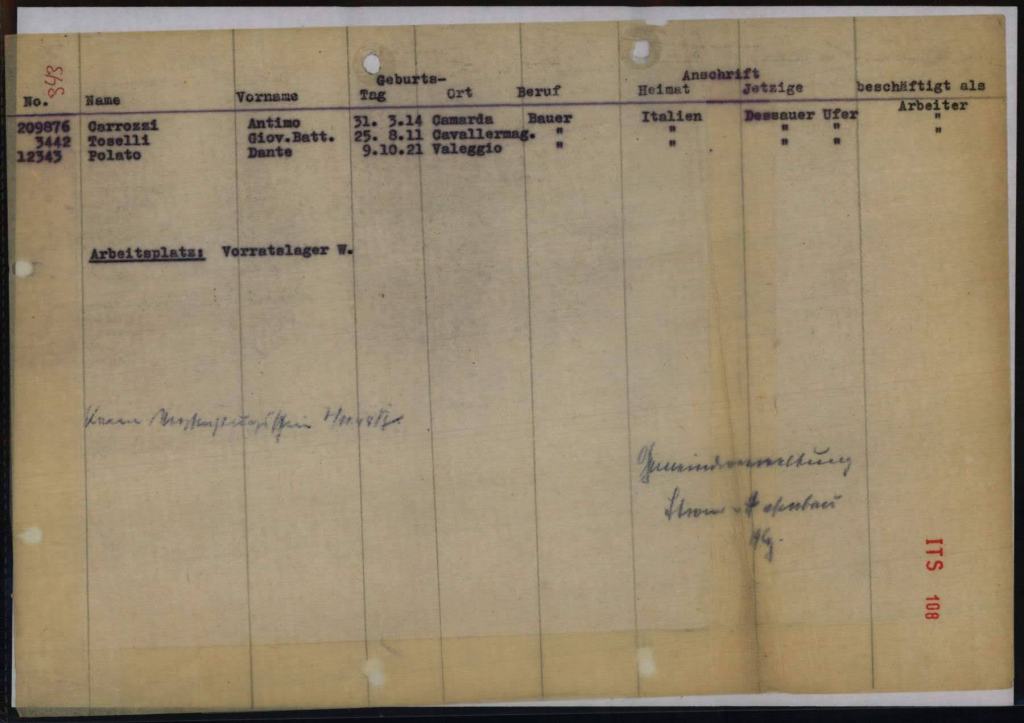 343
Geburts- Anschrift
No. Name Vorname Tag Ort Beruf Heimat Jetzige beschäftigt als
209876 Carrozzi Antimo 31. 3.14 Camarda Bauer Italien Dessauer Ufer Arbeiter
3442 Toselli Giov.Batt. 25. 8.11 Cavallermag. " " " " "
12343 Polato Dante 9.10.21 Valeggio " " " " "
Arbeitsplatz: Vorratslager W.
Strom
ITS 108